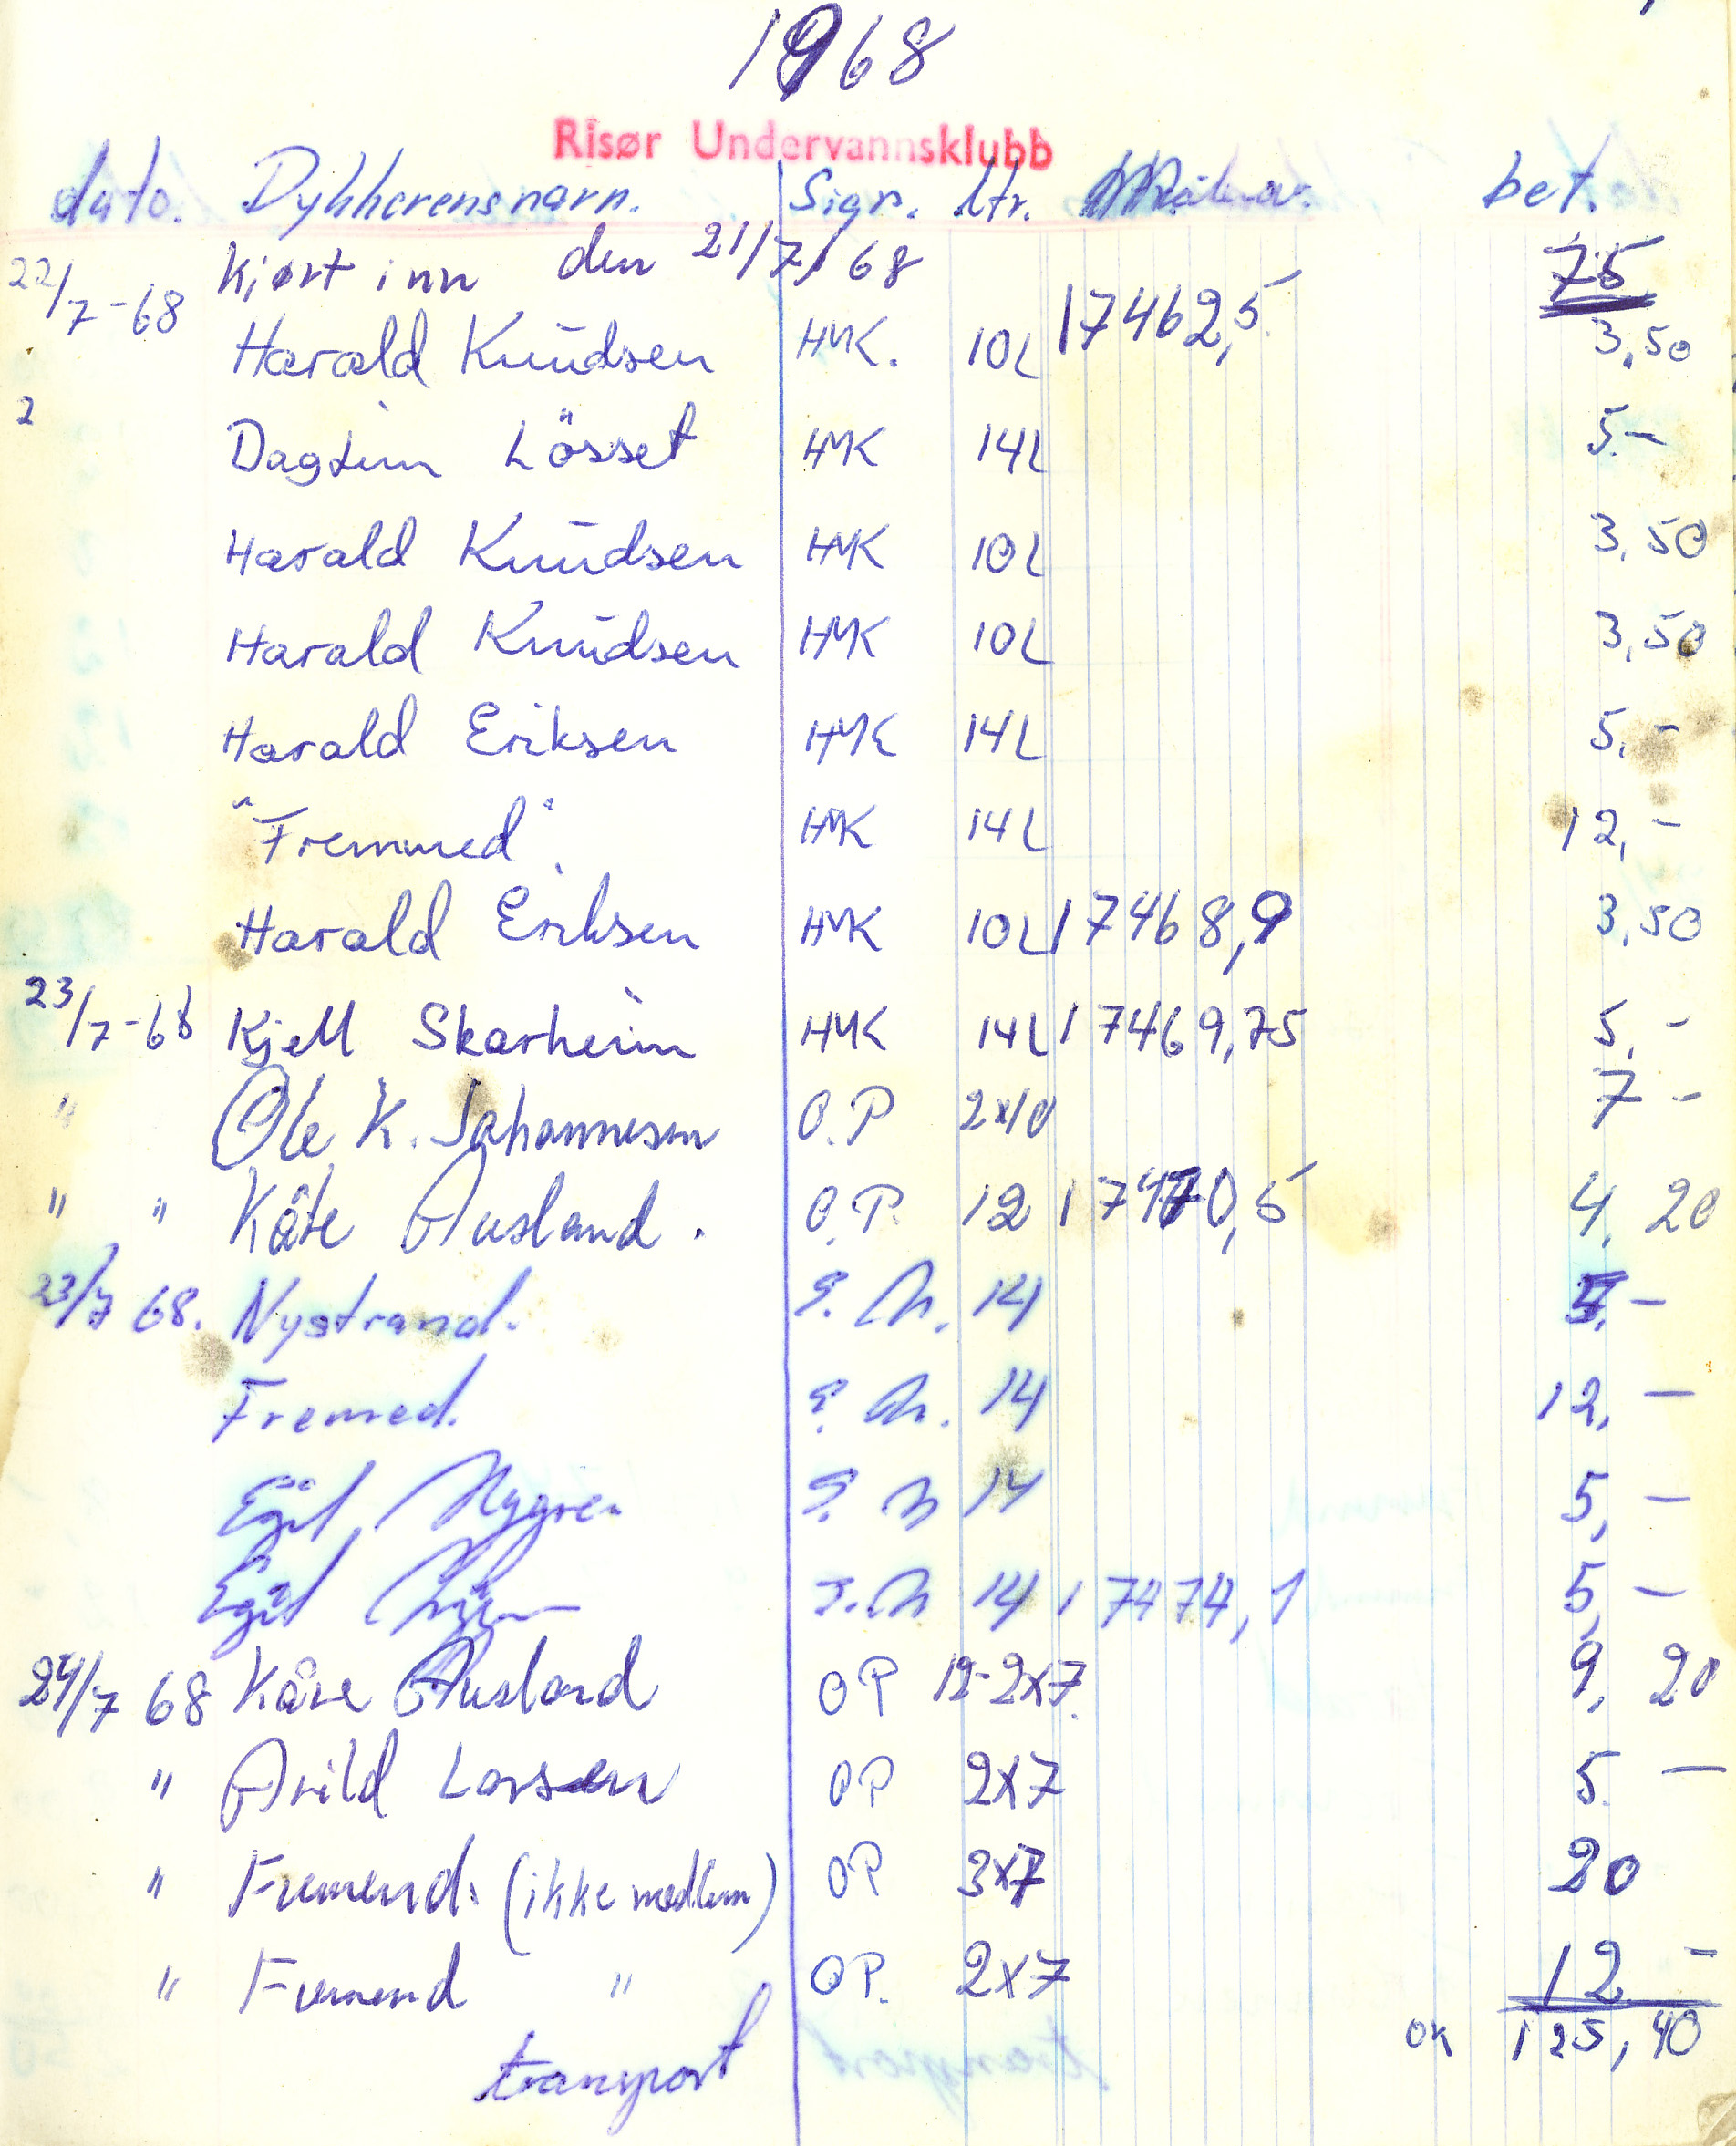 1968
Risør Undervannsklubb
dato. Dykkerens navn. Sign. Ltr. bet.
Kjørt inn den 21/7/68 75
22/7-68 Harald Knudsen HMK. 10L 17462,5 3,50
2 Dagfinn Lösset HMK 14L 5.-
Harald Knudsen HMK 10L 3,50
Harald Knudsen HMK 10L 3,50
Harald Eriksen HMK 14L 5,-
"Fremmed". HMK 14L 12,-
Harald Eriksen HMK 10L 17468,9 3,50
23/7-68 Kjell Skarheim HMK 14L 17469,75 5,-
" Ole K. Johannesen O.P 2x10 7-
" " Kåre Ausland. O.P. 12 17470,5 4,20
23/7 68. Nystrand. E. N. 14 5,-
Fremed. E. N. 14 12,-
Egil Nygren E. N 14 5,-
Egil E. N 14 17474,1 5,-
24/7 68 Kåre Ausland OP 12-2x7. 9,20
" Arild Larsen OP 2x7 5.-
" Fremend. (ikke medlem) OP 3x7 20
" Fremend " OP. 2x7 12-
OK 125,40
transport